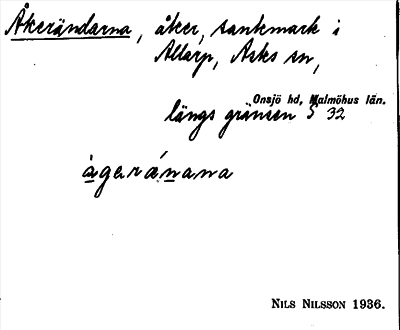 Åkerändarna, åker, sankmark i
Allarp, Asks sn,
Onsjö hd, Malmöhus län.
längs gränsen S 32
àgaránana
NILS NILSSON 1936.